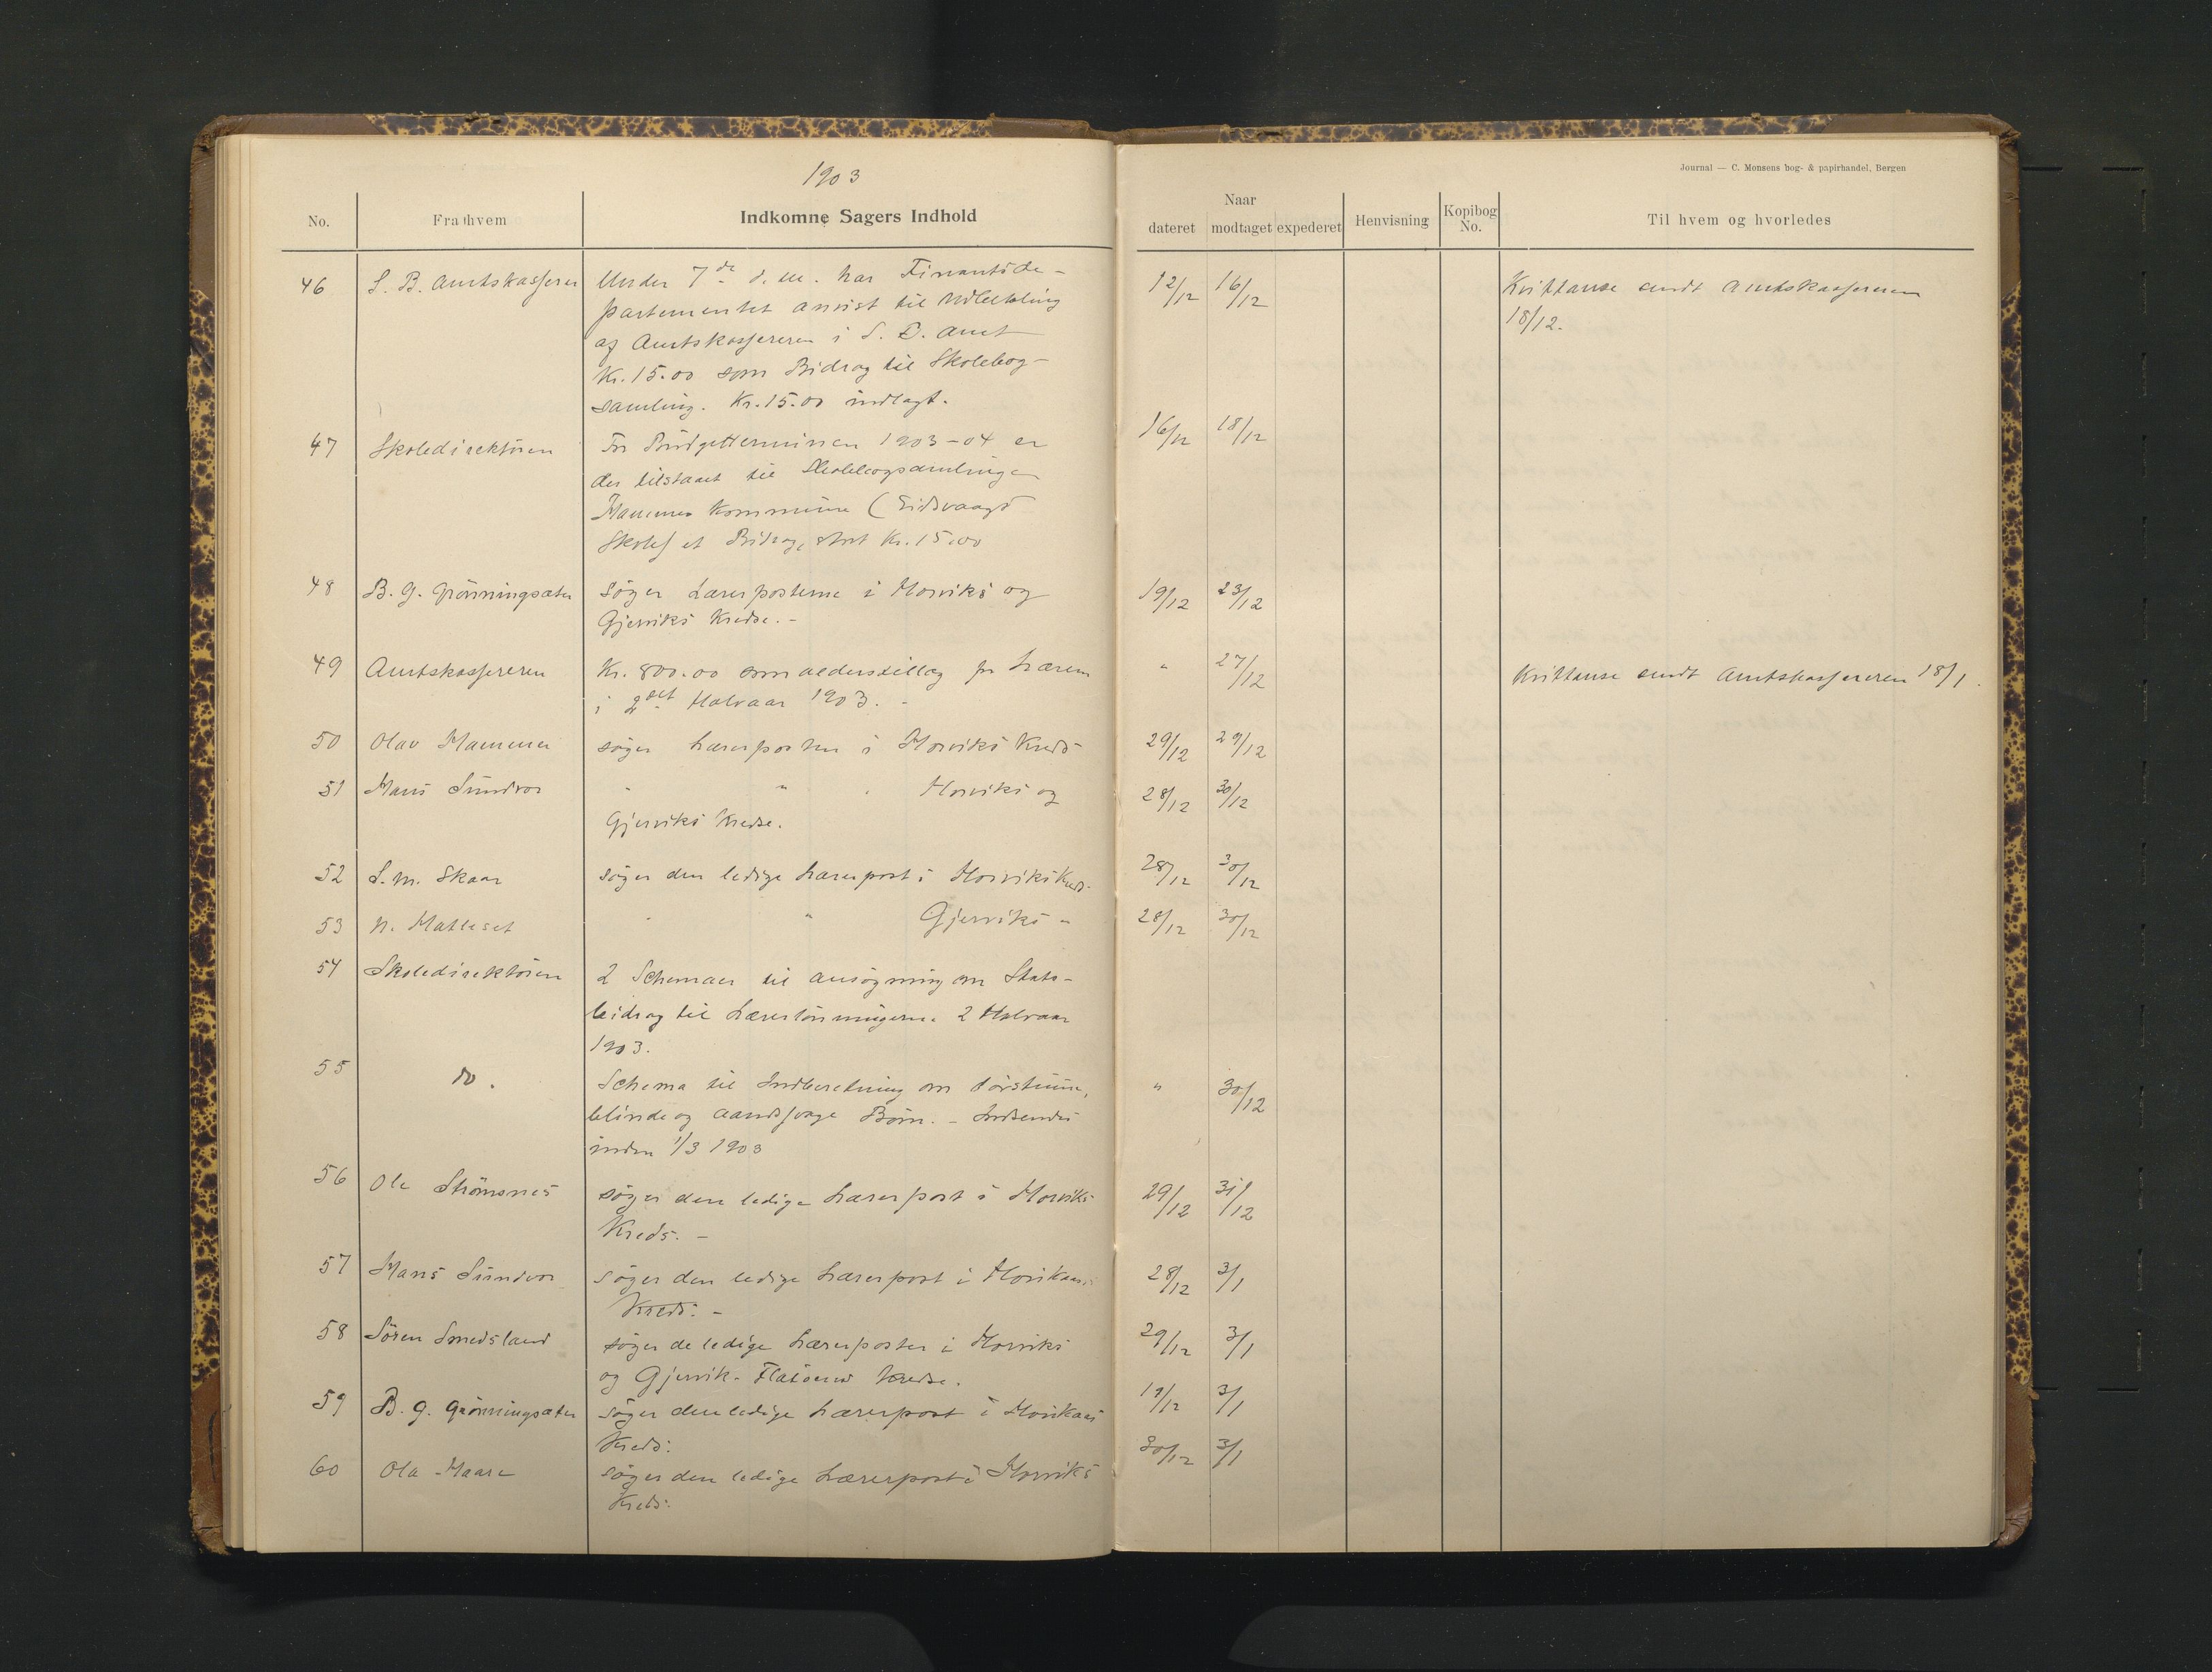 1903
Journal — C. Monsens bog- & papirhandel, Bergen
No. Fra hvem Indkomne Sagers Indhold
Naar
dateret modtaget expederet Henvisning Kopibog No. Til hvem og hvorledes
46 S. B. Amtskasserer Under 7de d. m. har Finantsde- 12/12 16/12 Kvittanse sendt Amtskassereren
partementet anvist til Udbetaling 18/12.
af Amtskassereren i S. B. Amt
Kr. 15.00 som Bidrag til Skolebog-
samling. Kr. 15.00 indlagt.
47 Skoledirektören For Budgetterminen 1903-04 er 16/12 18/12
der tilstaaet til Skolebogsamlingen
Hammer Kommune (Eidsvaags
Skole) et Bidrag, stort Kr. 15.00
48 B. G. Grönningsæter Söger Lærerposterne i Horviks og 19/12 23/12
Gjerviks Kredse. -
49 Amtskassereren Kr. 800.00 som alderstillæg for Lærere " 27/12 Kvittanse sendt Amtskassereren 18/1.
i 2det Halvaar 1903. -
50 Olav Hammer söger Lærerposten i Horviks Kreds 29/12 29/12
51 Hans Sundvor " " " Horviks og 28/12 30/12
Gjerviks Kredse.
52 S. M. Skaar söger den ledige Lærerpost i Horviks Kreds. 28/12 30/12
53 N. Matleset " " Gjerviks " 28/12 30/12
54 Skoledirektören 2 Schemaer til ansögning om Stats-
bidrag til Lærerlönningerne 2 Halvaar
1903.
55 do. Schema til Indberetning om dövstumme, " 30/12
blinde og aandssvage Börn. - Indsendes
inden 1/3 1903
56 Ole Strömsnes söger den ledige Lærerpost i Horviks 29/12 31/12
Kreds. -
57 Hans Sundvor söger den ledige Lærerpost i 28/12 3/1
Kreds. -
58 Sören Smedsland söger de ledige Lærerposter i Horviks 29/12 3/1
og Gjervik-Flatöens Kredse.
59 B. G. Grönningsæter söger den ledige Lærerpost i 19/12 3/1
Kreds.
60 Ola Haare söger den ledige Lærerpost i Horviks 30/12 3/1
Kreds.